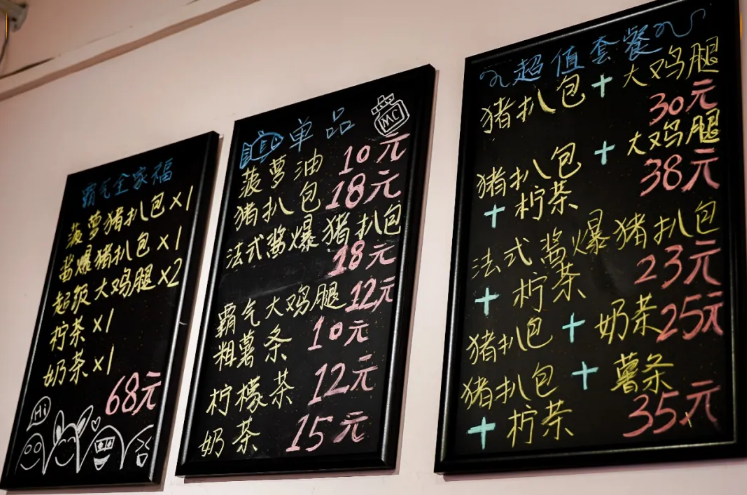 霸气全家福
菠萝猪扒包×1
酱爆猪扒包×1
超级大鸡腿×2
柠茶×1
奶茶×1
68元
Hi
单品
MC
菠萝油 10元
猪扒包 18元
法式酱爆猪扒包
18元
霸气大鸡腿 12元
粗薯条 10元
柠檬茶 12元
奶茶 15元
超值套餐
猪扒包+大鸡腿
30元
猪扒包+大鸡腿
+柠茶 38元
法式酱爆猪扒包
+柠茶 23元
猪扒包+奶茶 25元
猪扒包+薯条
+柠茶 35元